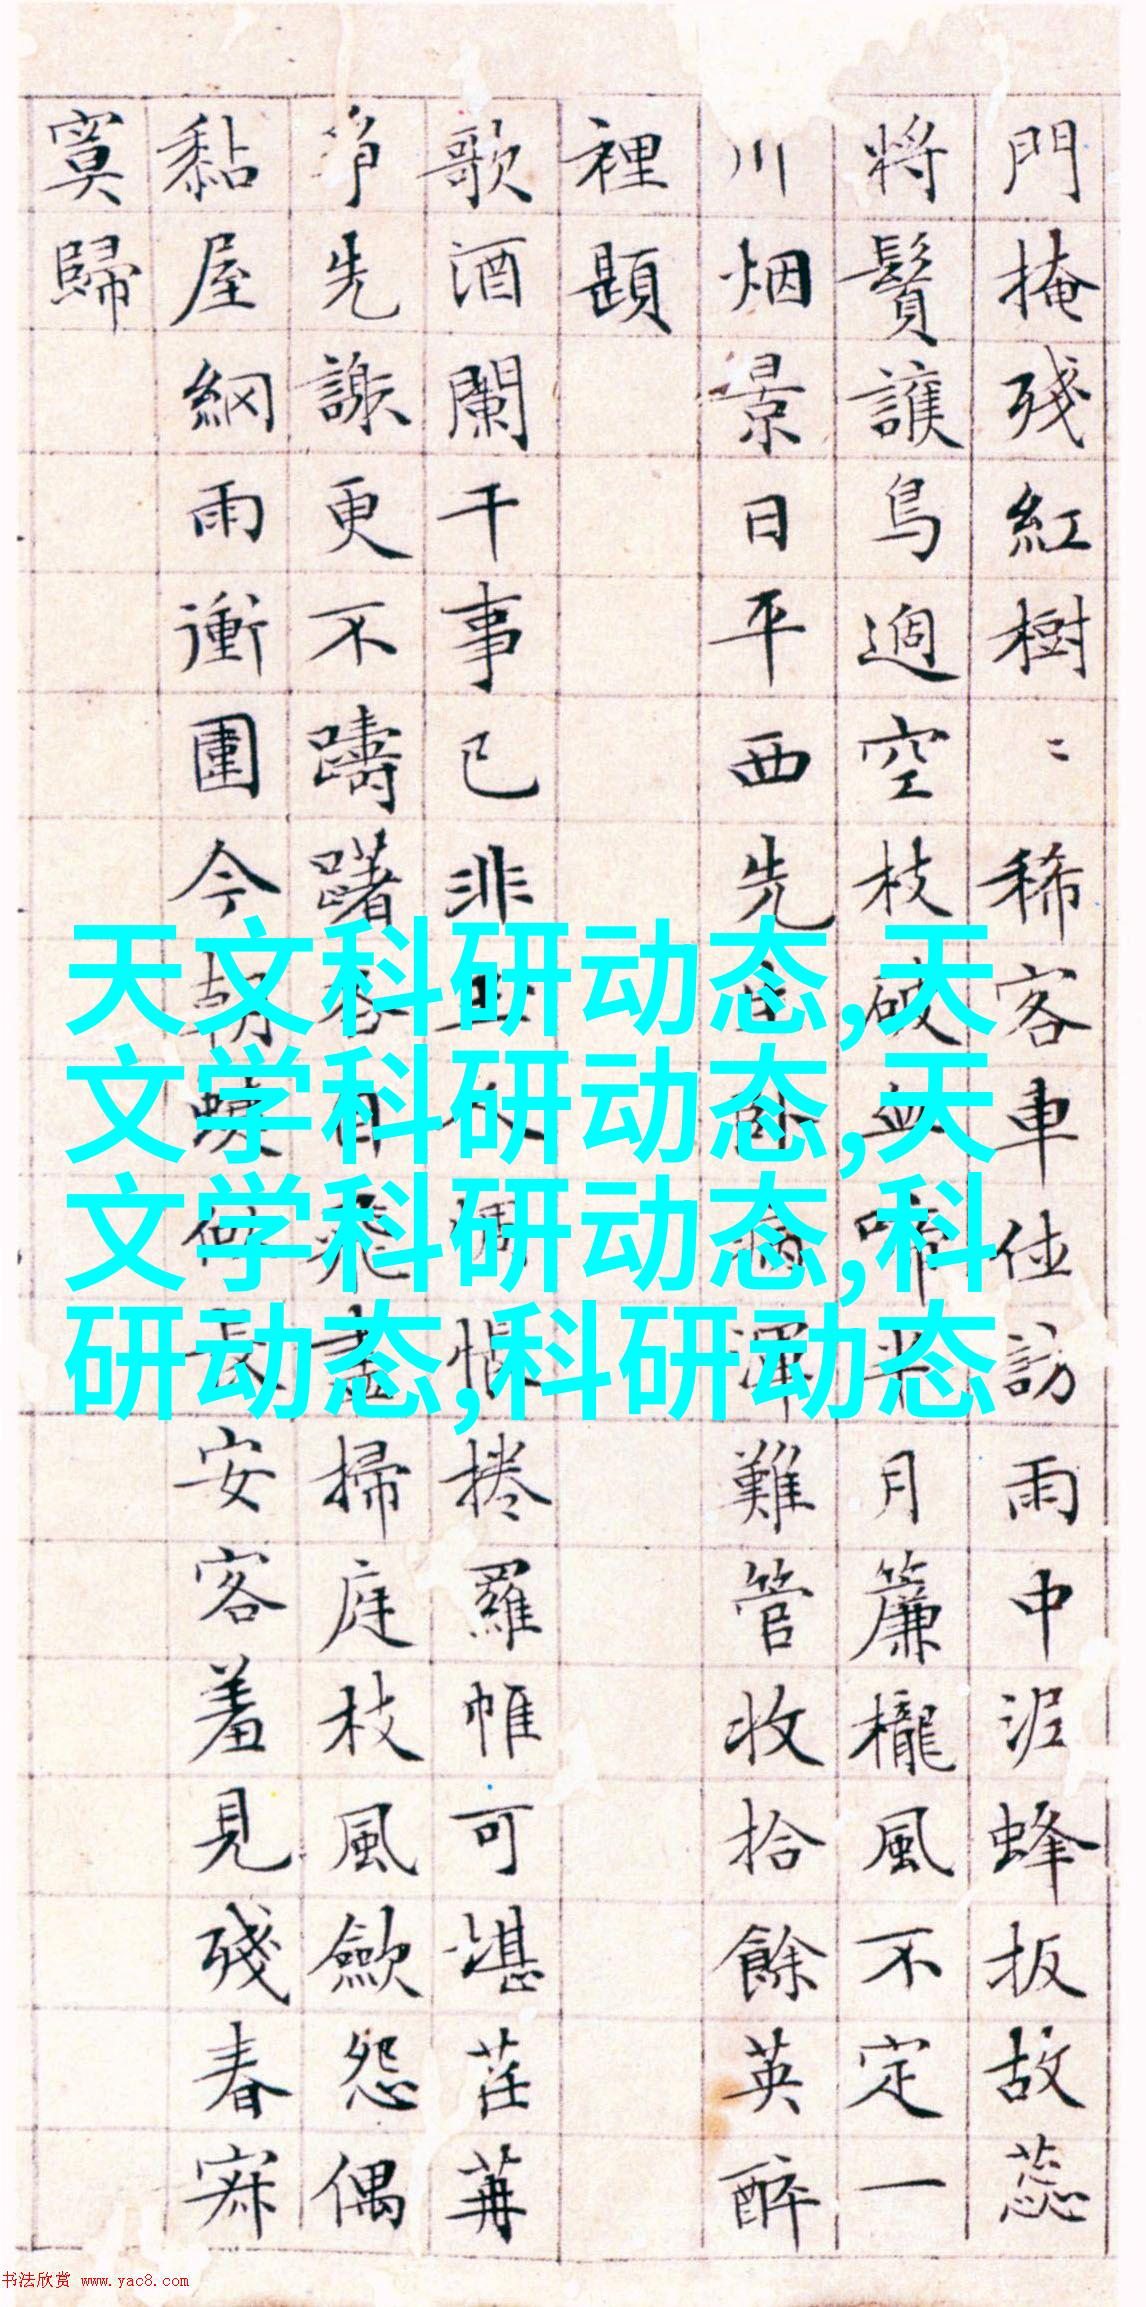 門掩殘紅樹〻稀客車訪雨中泥蜂扳故蕊
將鬢護鳥過空枝破血啼半月簾櫳風不定一
川烟景日平西先生卧病渾難管收拾餘英醉
裡題
歌酒闌干事已非無人惆悵捲羅帷可堪荏苒
爭先謝更不躊躇各自飛盡掃庭枝風歛怨偶
黏屋網雨衝圍今朝似長安客羞見殘春寂
寞歸
天文科研动态,天
文学科研动态,天
文学科研动态,科
研动态,科研动态
书法欣赏 www.yac8.com